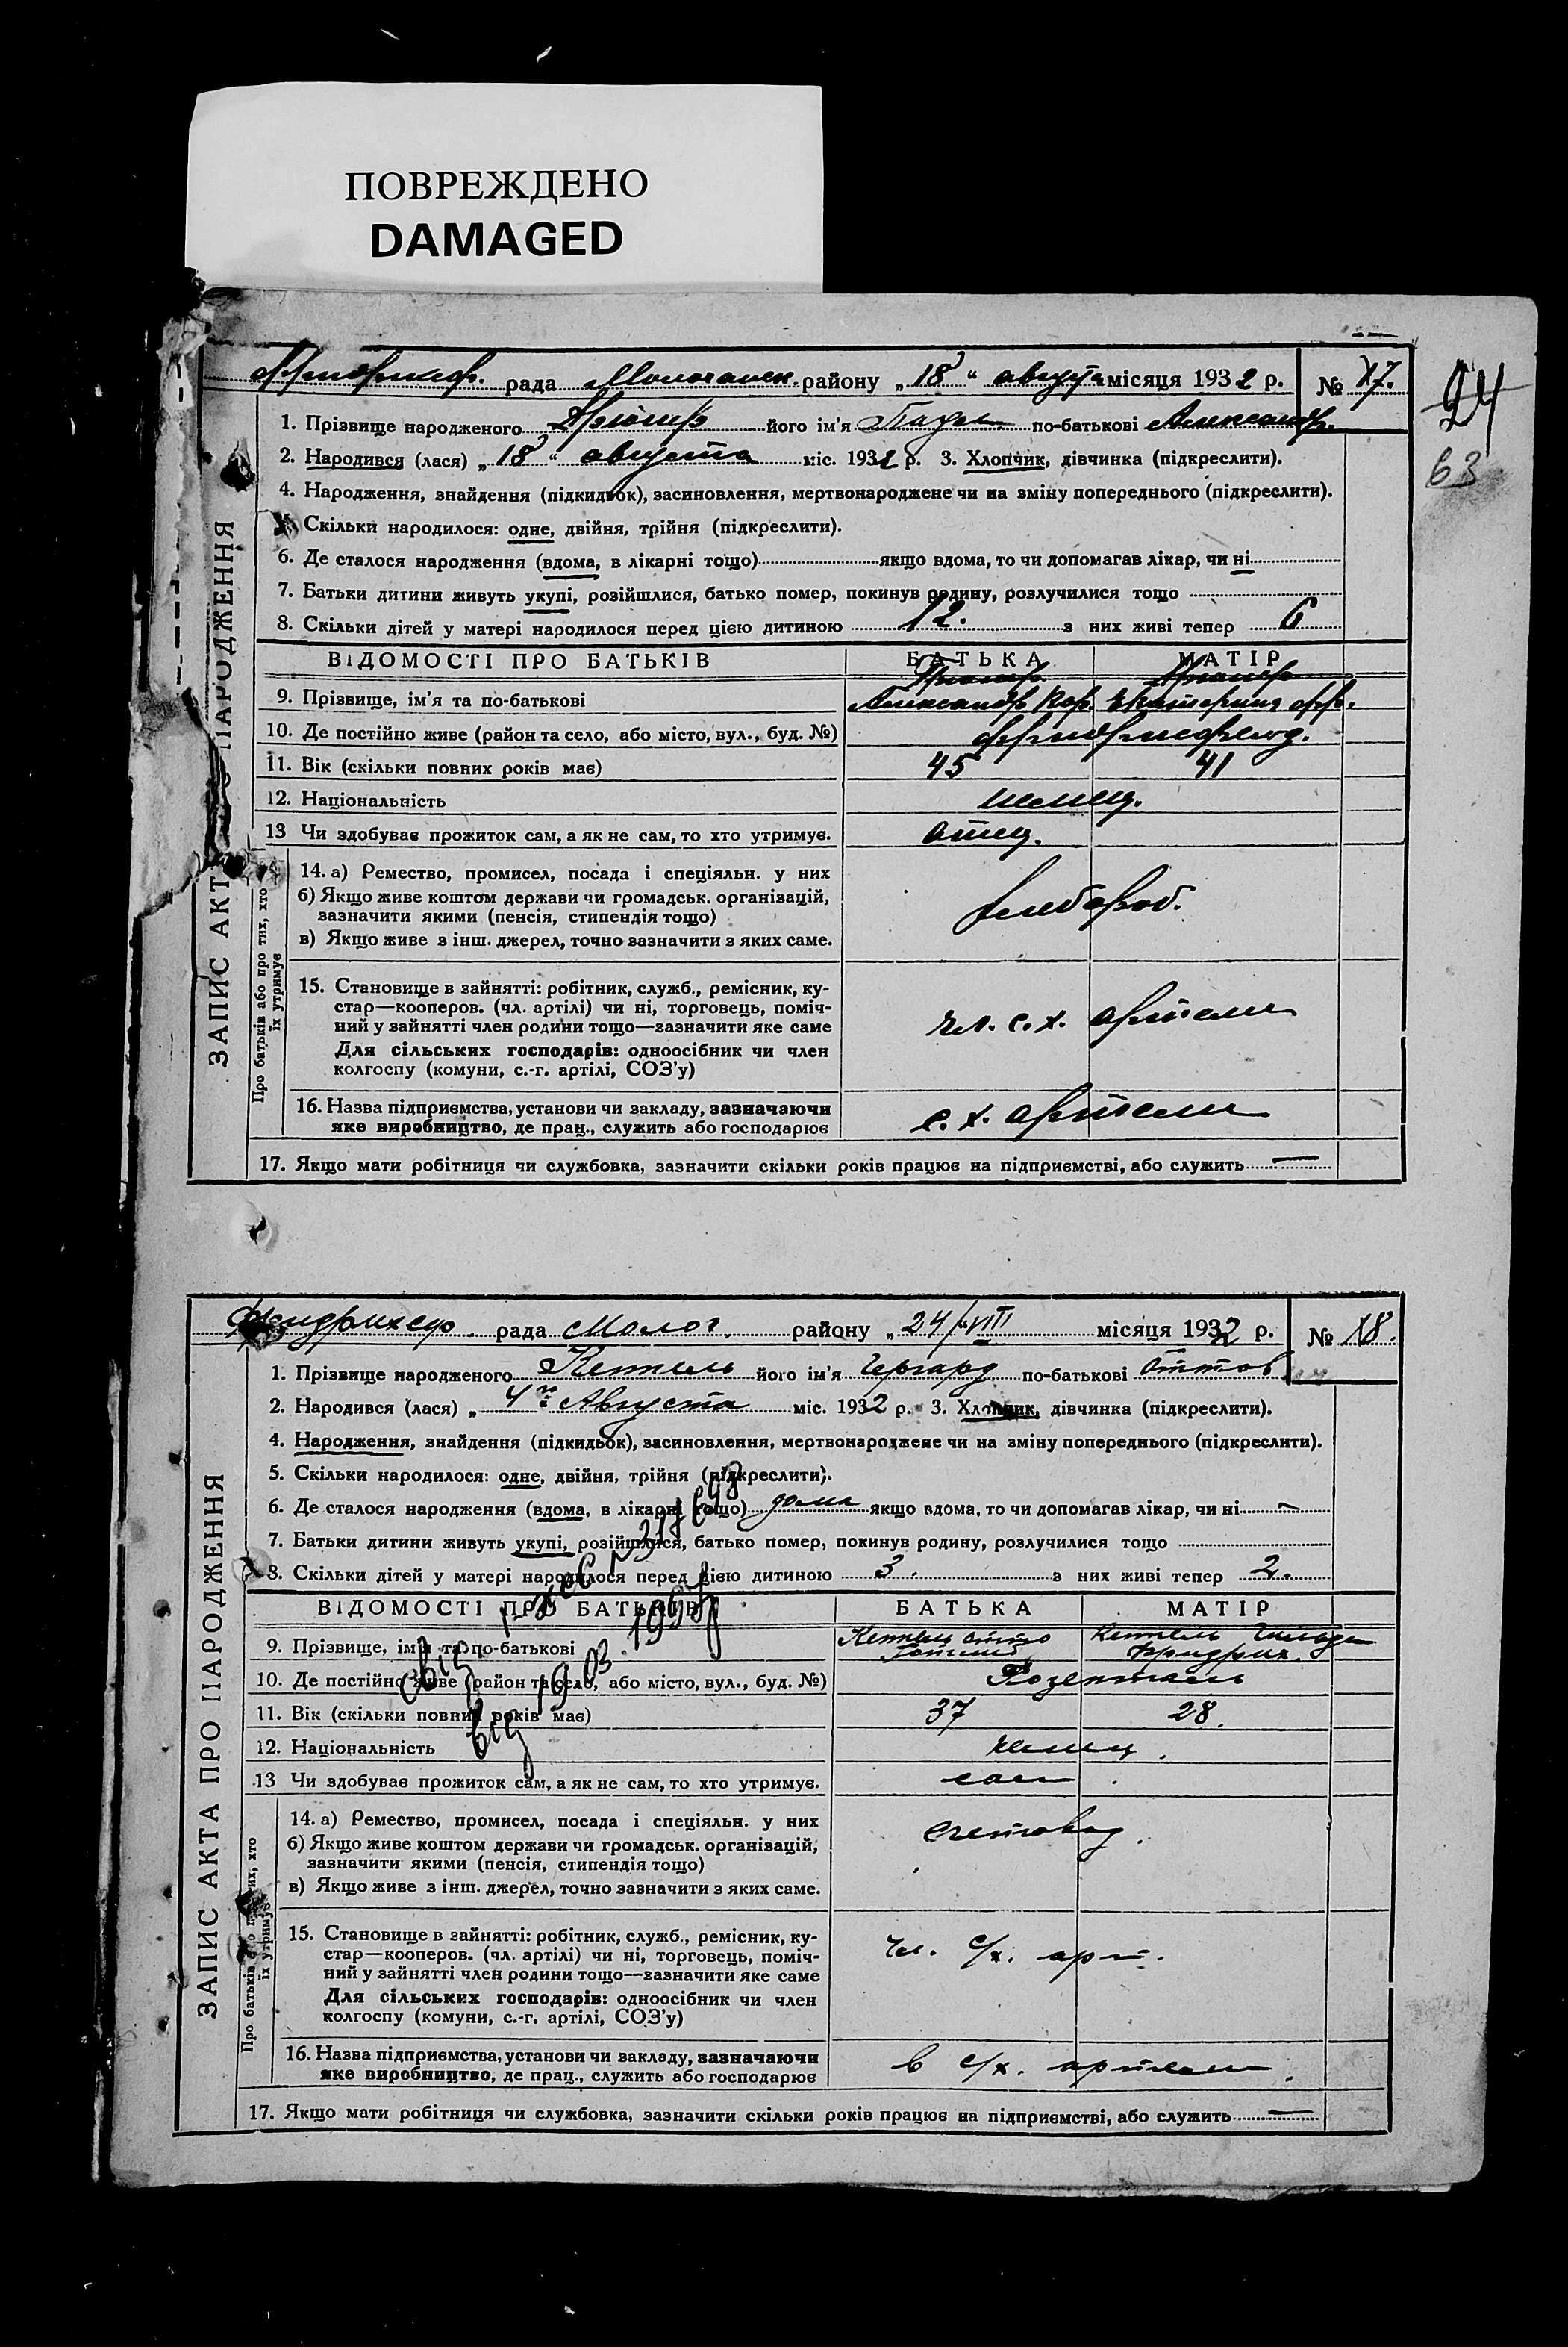 ПОВРЕЖДЕНО
DAMAGED
рада Молочанск. району „18“ августа місяця 1932 р. № 17.
24
63
1. Прізвище народженого його ім'я по-батькові Александр.
2. Народився (лася) „18“ августа міс. 1932 р. 3. Хлопчик, дівчинка (підкреслити).
4. Народження, знайдення (підкидьок), засиновлення, мертвонароджене чи на зміну попереднього (підкреслити).
Скільки народилося: одне, двійня, трійня (підкреслити).
6. Де сталося народження (вдома, в лікарні тощо) якщо вдома, то чи допомагав лікар, чи ні
7. Батьки дитини живуть укупі, розійшлися, батько помер, покинув родину, розлучилися тощо
8. Скільки дітей у матері народилося перед цією дитиною 12. з них живі тепер 6
ВІДОМОСТІ ПРО БАТЬКІВ БАТЬКА МАТІР
9. Прізвище, ім'я та по-батькові Александр Екатерина
10. Де постійно живе (район та село, або місто, вул., буд. №)
11. Вік (скільки повних років має) 45 41
12. Національність немец.
13 Чи здобуває прожиток сам, а як не сам, то хто утримує. отец.
14. а) Ремество, промисел, посада і спеціяльн. у них
б) Якщо живе коштом держави чи громадськ. організацій,
зазначити якими (пенсія, стипендія тощо)
хлебороб.
в) Якщо живе з інш. джерел, точно зазначити з яких саме.
15. Становище в зайнятті: робітник, служб., ремісник, ку-
стар—кооперов. (чл. артілі) чи ні, торговець, поміч-
ний у зайнятті член родини тощо—зазначити яке саме
чл. с.х. артели
Для сільських господарів: одноосібник чи член
колгоспу (комуни, с.-г. артілі, СОЗ'у)
16. Назва підприємства, установи чи закладу, зазначаючи
яке виробництво, де прац., служить або господарює
с.х. артели
17. Якщо мати робітниця чи службовка, зазначити скільки років працює на підприємстві, або служить —
ЗАПИС АКТ НАРОДЖЕННЯ
Про батьків або про тих, хто
їх утримує
рада Молоч. району „24/VIII місяця 1932 р. № 18.
1. Прізвище народженого Кеттель його ім'я Гергард по-батькові Оттов
2. Народився (лася) „4 Августа міс. 1932 р. 3. Хлопчик, дівчинка (підкреслити).
4. Народження, знайдення (підкидьок), засиновлення, мертвонароджене чи на зміну попереднього (підкреслити).
5. Скільки народилося: одне, двійня, трійня (підкреслити).
6. Де сталося народження (вдома, в лікарні тощо) дома якщо вдома, то чи допомагав лікар, чи ні —
7. Батьки дитини живуть укупі, розійшлися, батько помер, покинув родину, розлучилися тощо
8. Скільки дітей у матері народилося перед цією дитиною 3. з них живі тепер 2.
ВІДОМОСТІ ПРО БАТЬКІВ БАТЬКА МАТІР
9. Прізвище, ім'я та по-батькові Кеттель Отто Кеттель Фридрих.
10. Де постійно живе (район та село, або місто, вул., буд. №) Розенталь
11. Вік (скільки повних років має) 37 28.
12. Національність немец.
13 Чи здобуває прожиток сам, а як не сам, то хто утримує. сам
14. а) Ремество, промисел, посада і спеціяльн. у них
б) Якщо живе коштом держави чи громадськ. організацій,
зазначити якими (пенсія, стипендія тощо)
счетовод.
в) Якщо живе з інш. джерел, точно зазначити з яких саме.
15. Становище в зайнятті: робітник, служб., ремісник, ку-
стар—кооперов. (чл. артілі) чи ні, торговець, поміч-
ний у зайнятті член родини тощо—зазначити яке саме
чл. с/х. арт.
Для сільських господарів: одноосібник чи член
колгоспу (комуни, с.-г. артілі, СОЗ'у)
16. Назва підприємства, установи чи закладу, зазначаючи
яке виробництво, де прац., служить або господарює
в с/х. артели
17. Якщо мати робітниця чи службовка, зазначити скільки років працює на підприємстві, або служить —
ЗАПИС АКТА ПРО НАРОДЖЕННЯ
Про батьків хто
їх утримує
від 19.03.